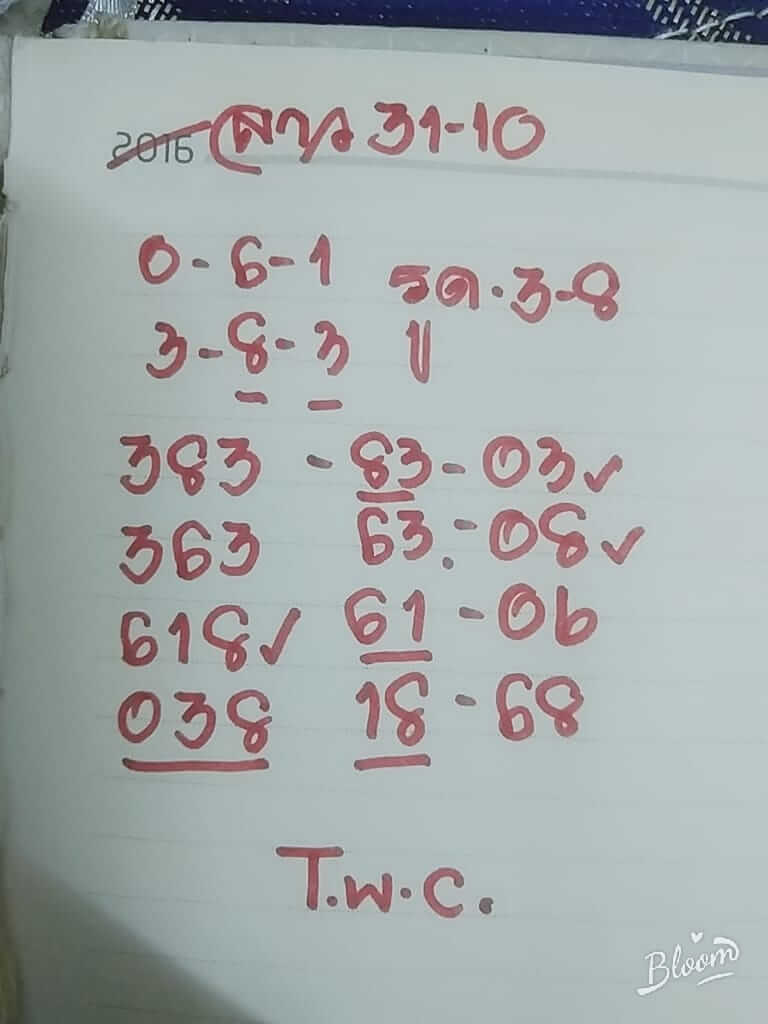 2016 ลาว 31-10
0-6-1 รูด.3-8
3-8-3 ||
383 - 83-03✓
363 63.-08✓
618✓ 61-06
038 18-68
T.W.C.
Bloom